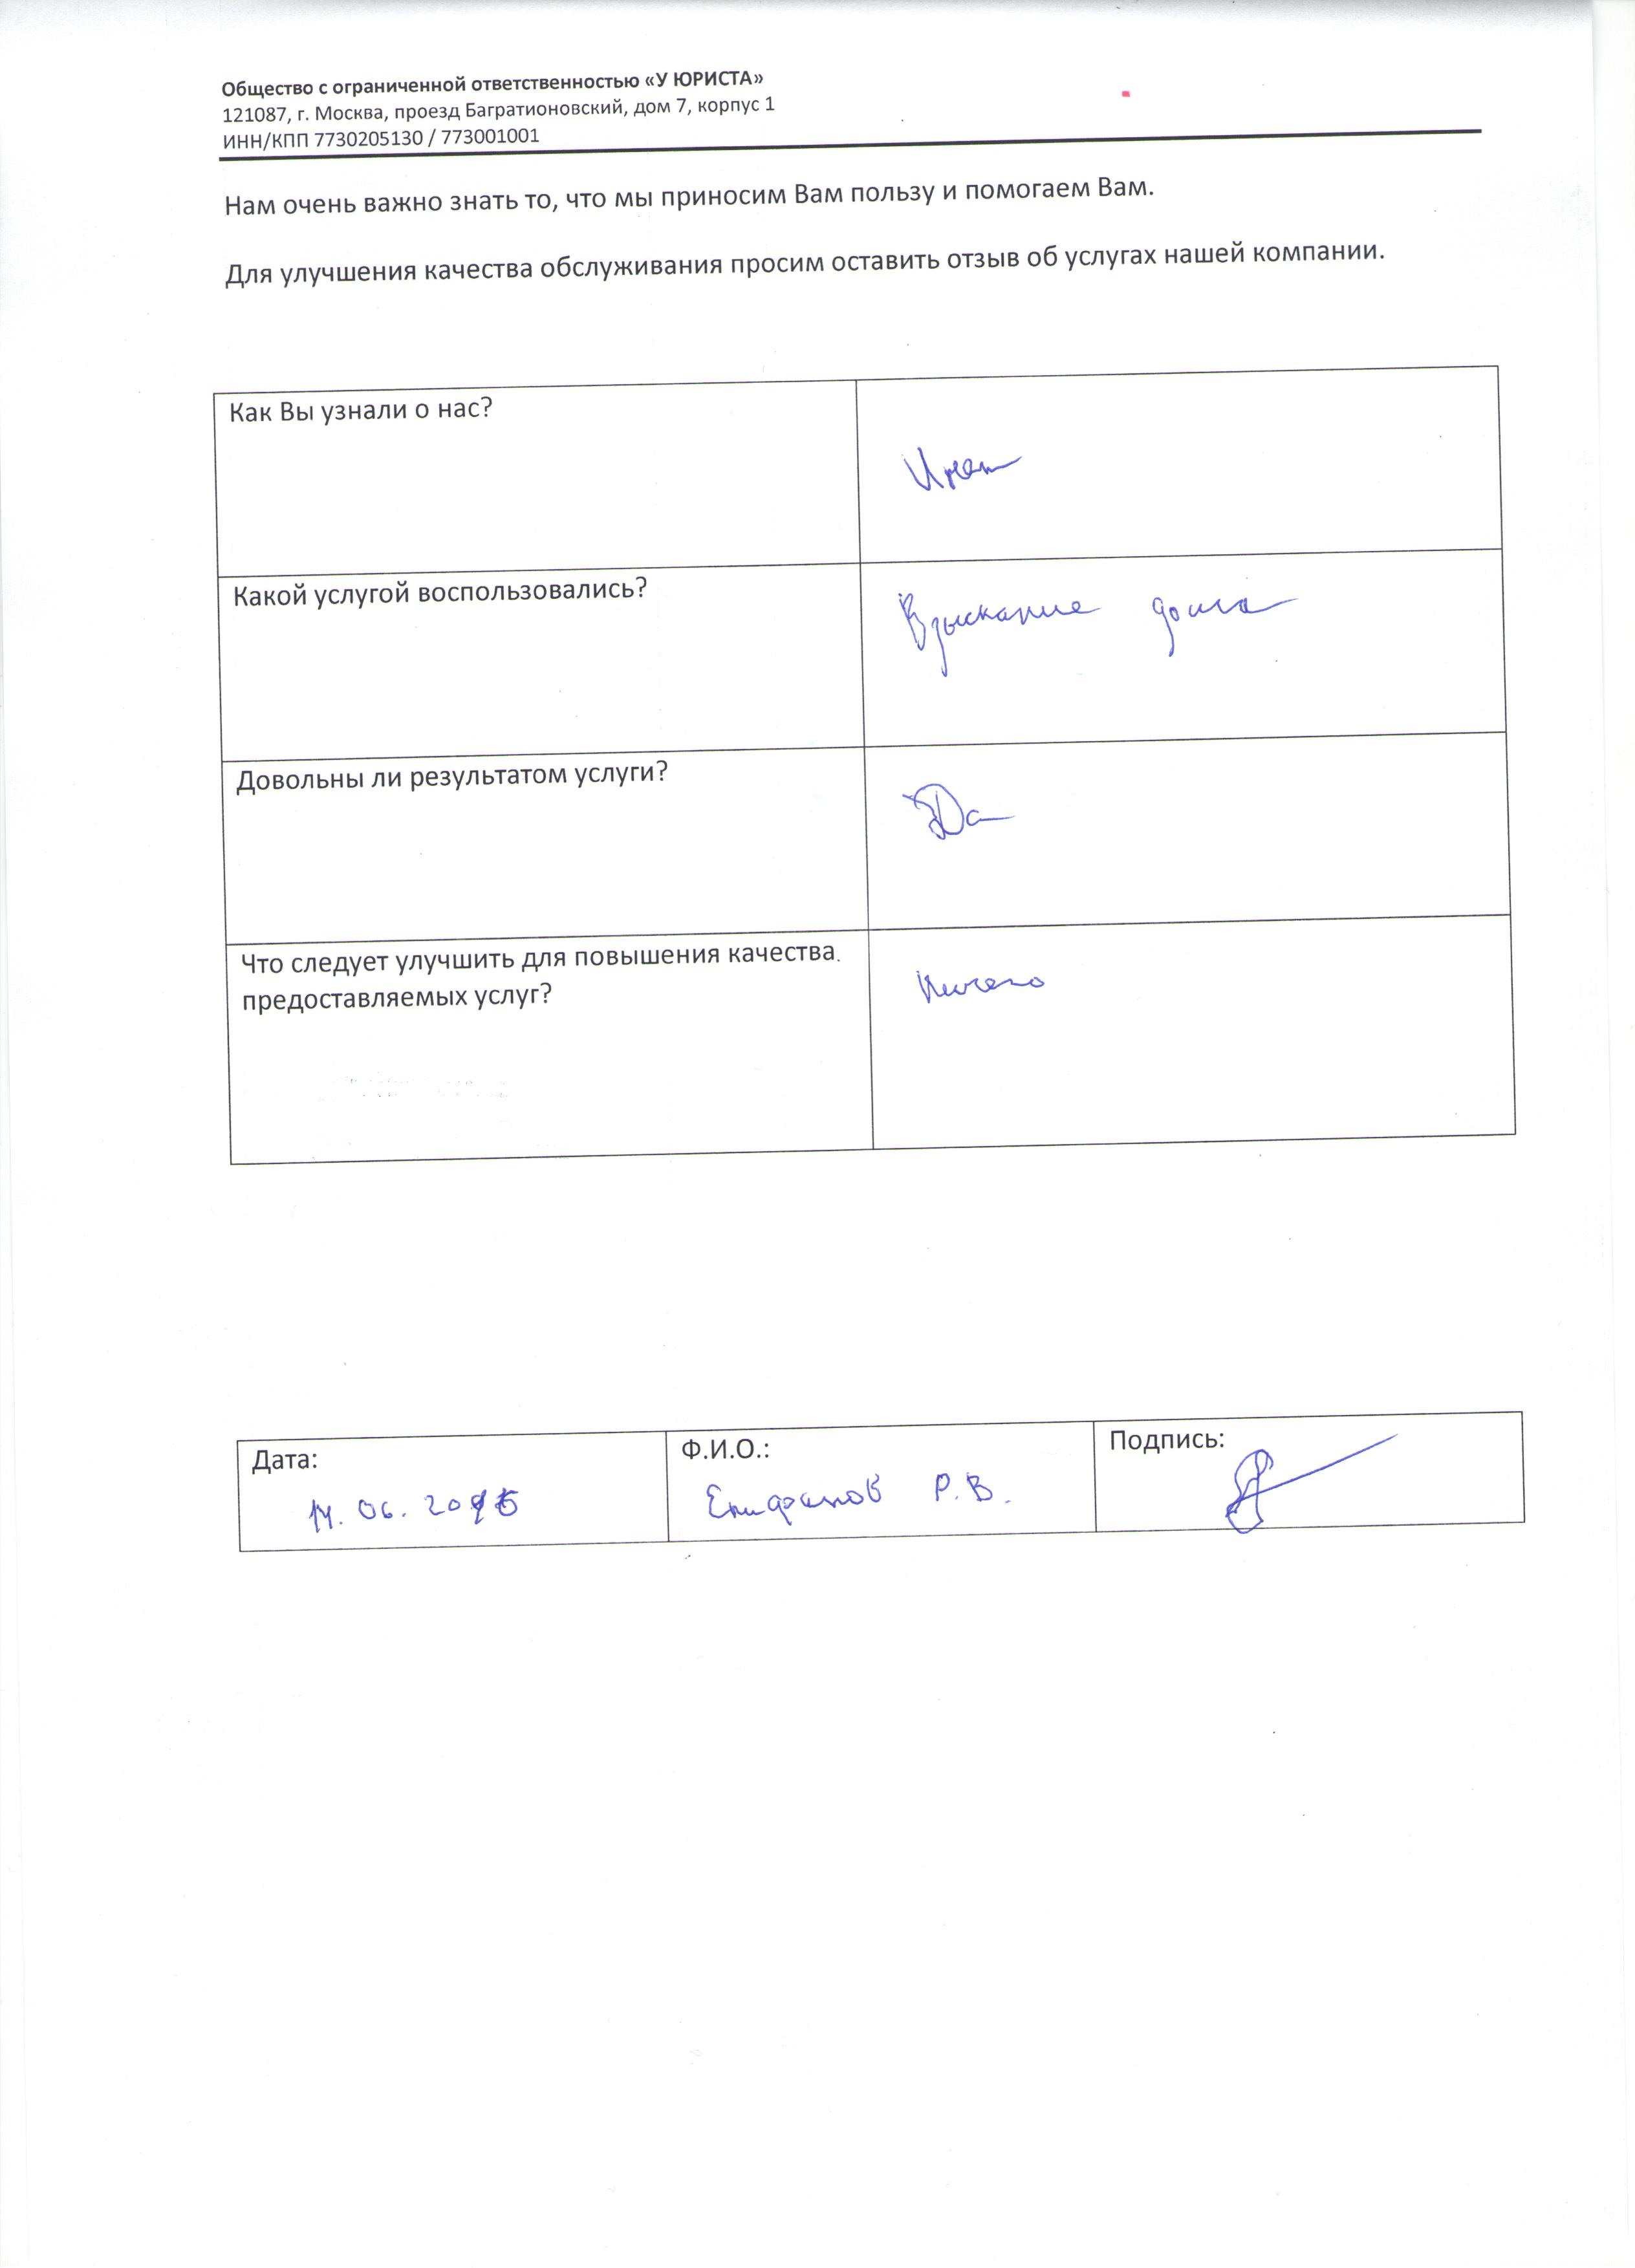 Общество с ограниченной ответственностью «У ЮРИСТА»
121087, г. Москва, проезд Багратионовский, дом 7, корпус 1
ИНН/КПП 7730205130 / 773001001
Нам очень важно знать то, что мы приносим Вам пользу и помогаем Вам.
Для улучшения качества обслуживания просим оставить отзыв об услугах нашей компании.
Как Вы узнали о нас?
Какой услугой воспользовались?
Взыскание долга
Довольны ли результатом услуги?
Да
Что следует улучшить для повышения качества
предоставляемых услуг?
Ничего
Дата:
Ф.И.О.:
Епифанов Р.В.
Подпись: